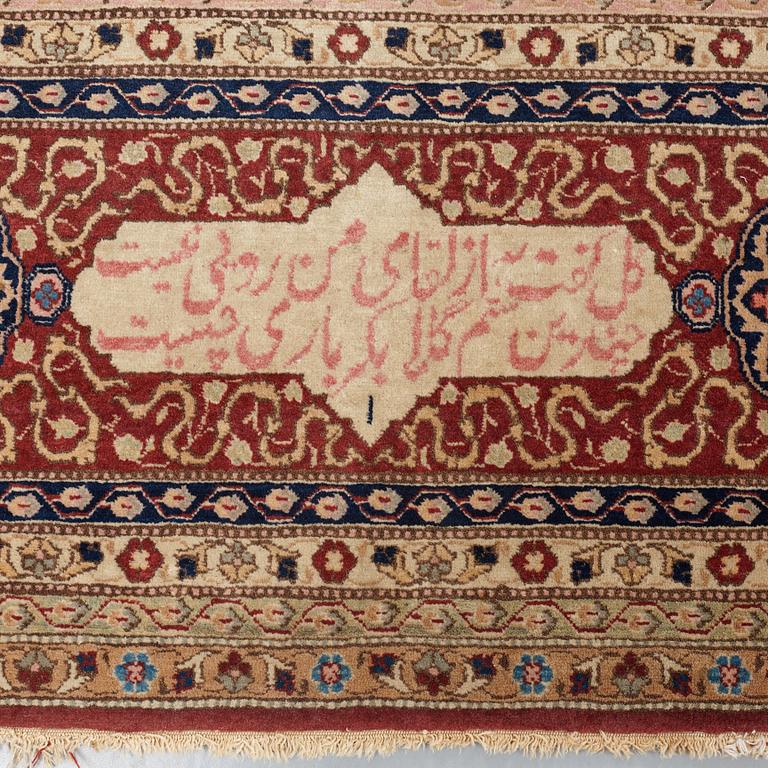 گل گفت به از لقای من رویی نیست
چندین ستم گلابگر باری چیست
۱